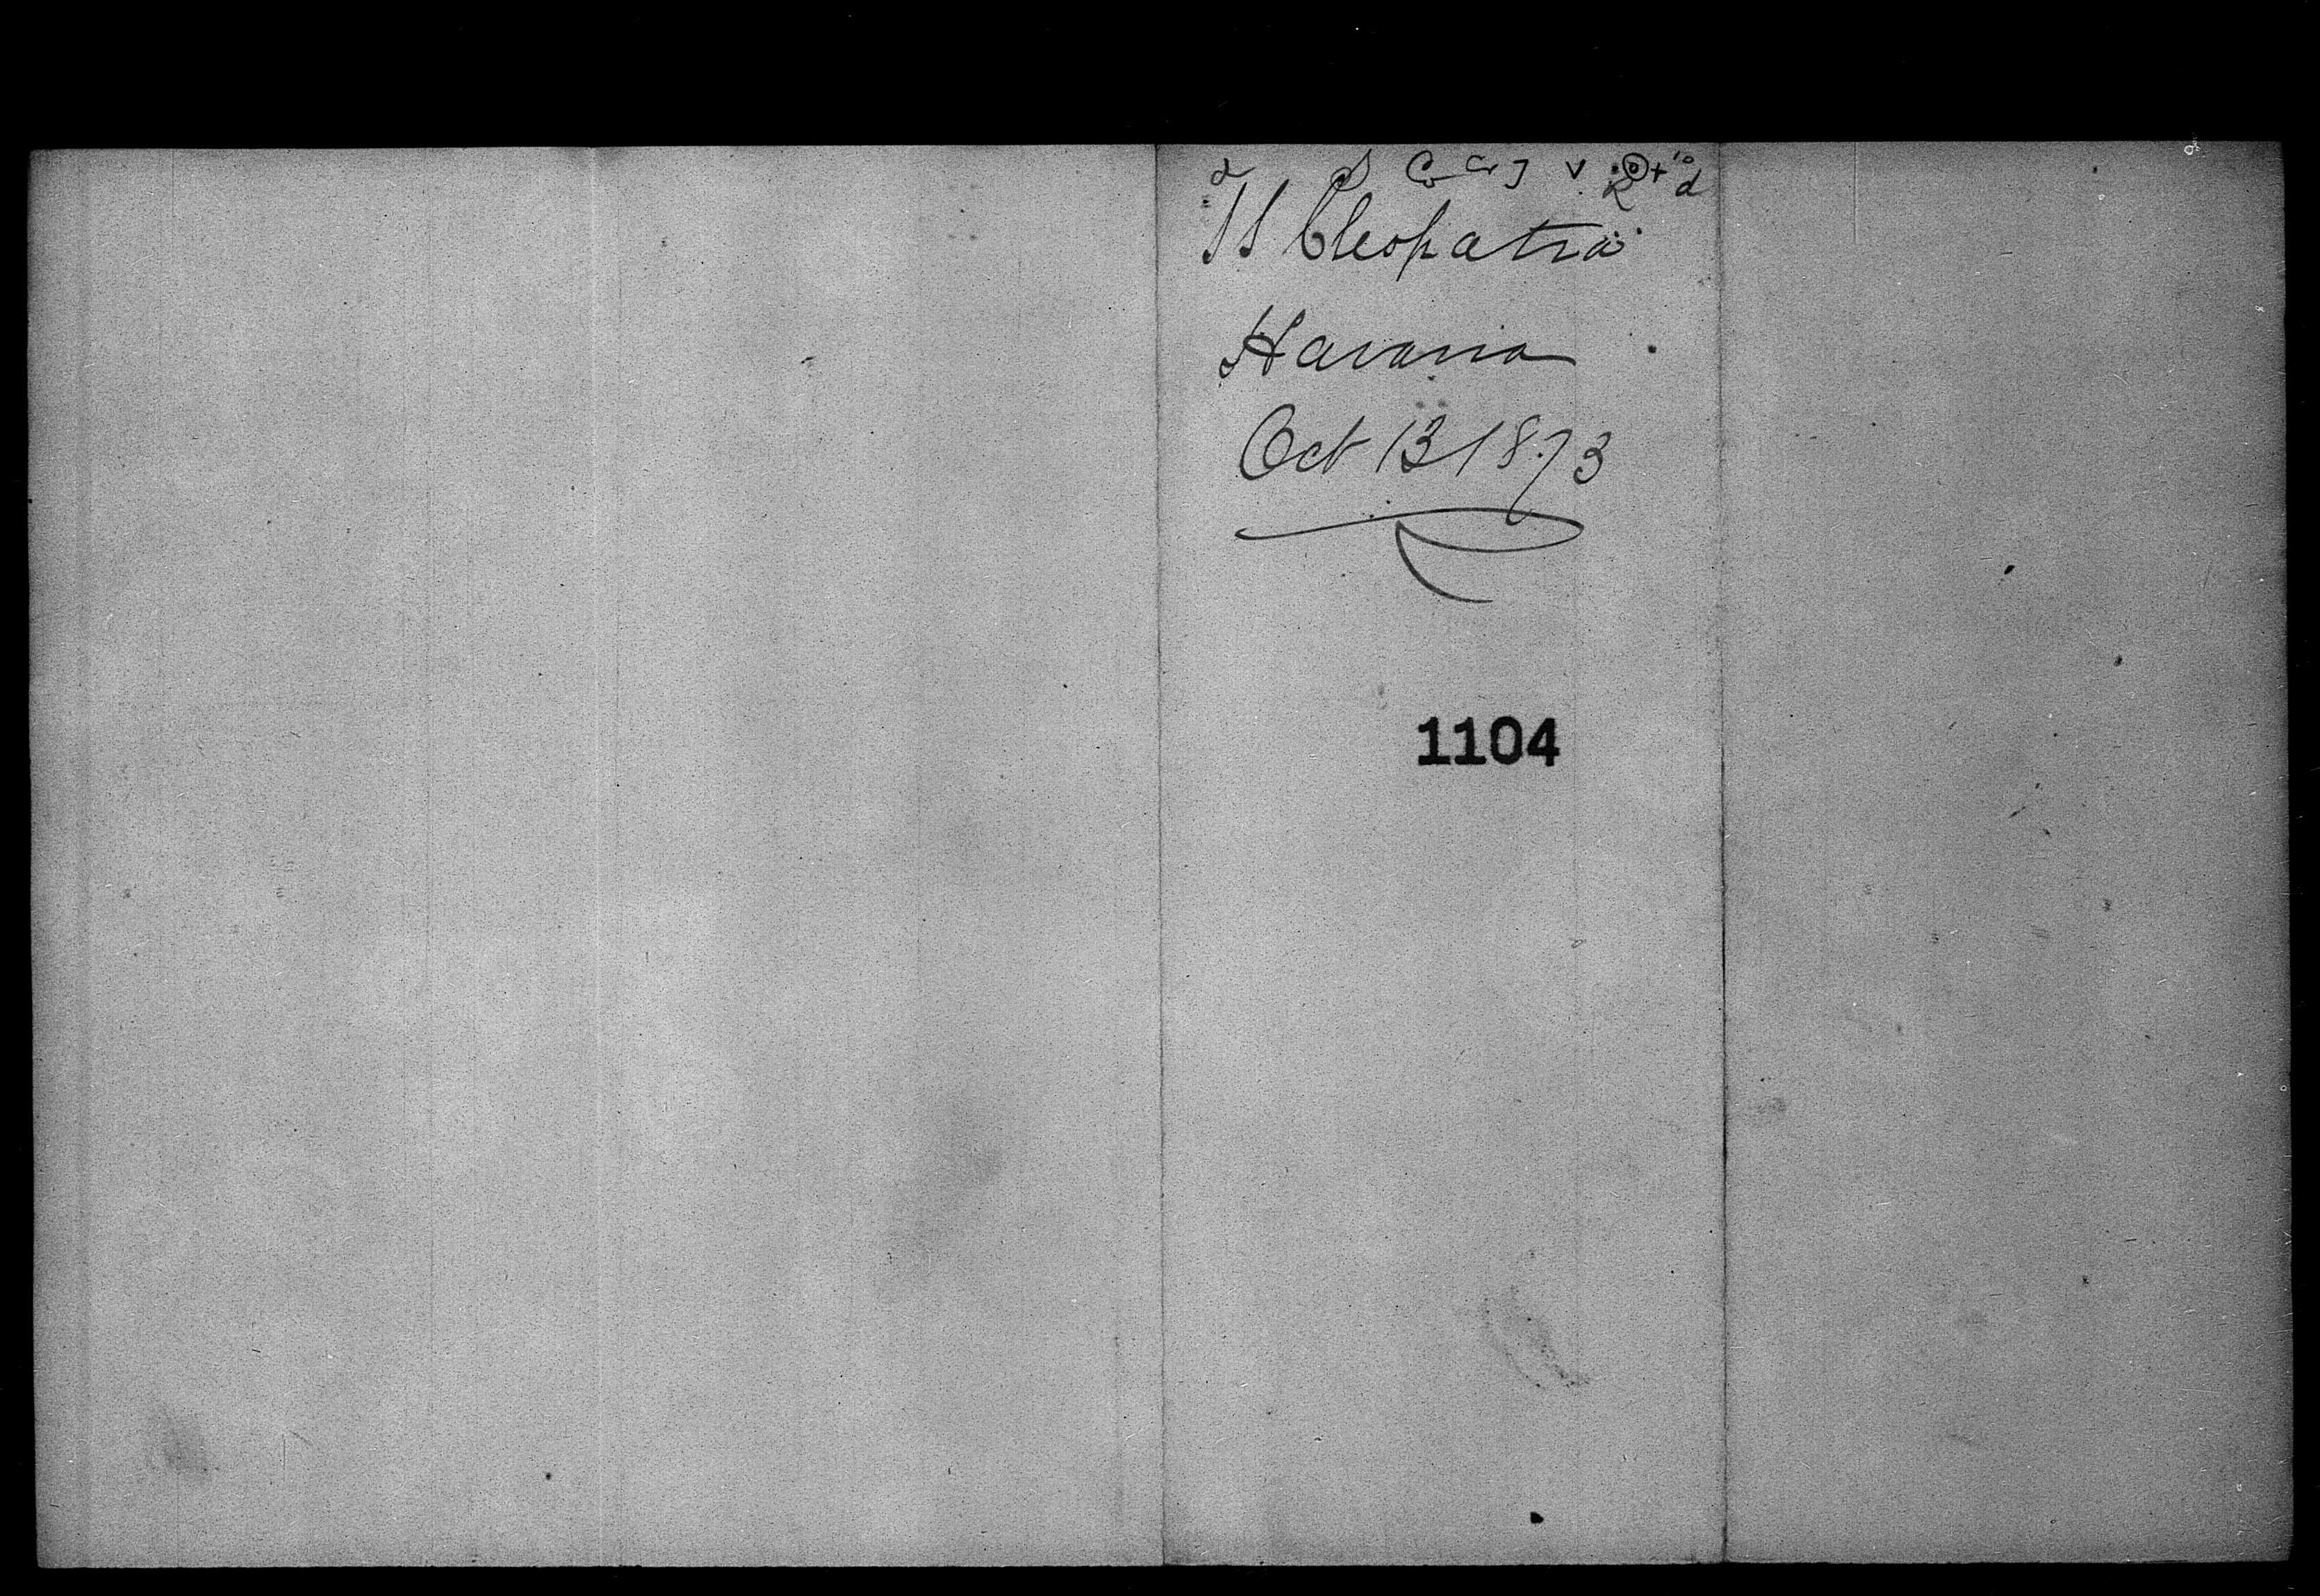 SS Cleopatra
Havana
Oct 13 1873
1104